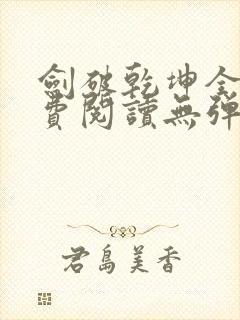 劍破乾坤全
費閱讀無彈
君島美香